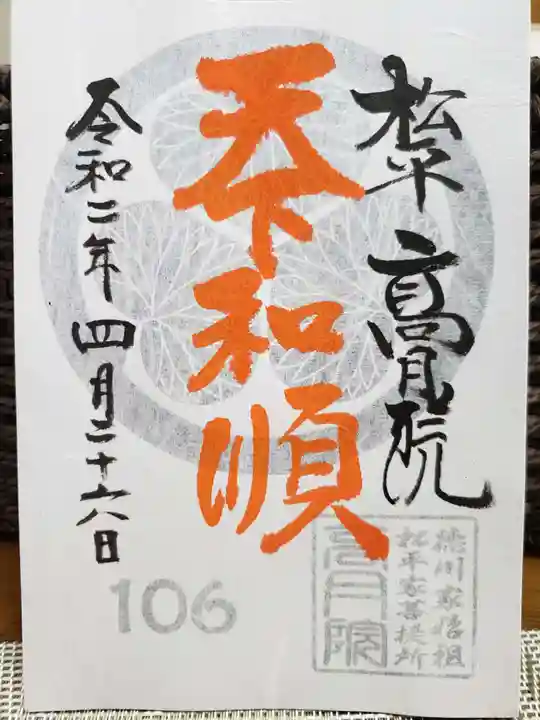 松平 高月院
天下和順
令和二年四月二十六日
徳川家始祖
松平家菩提所
高月院
106